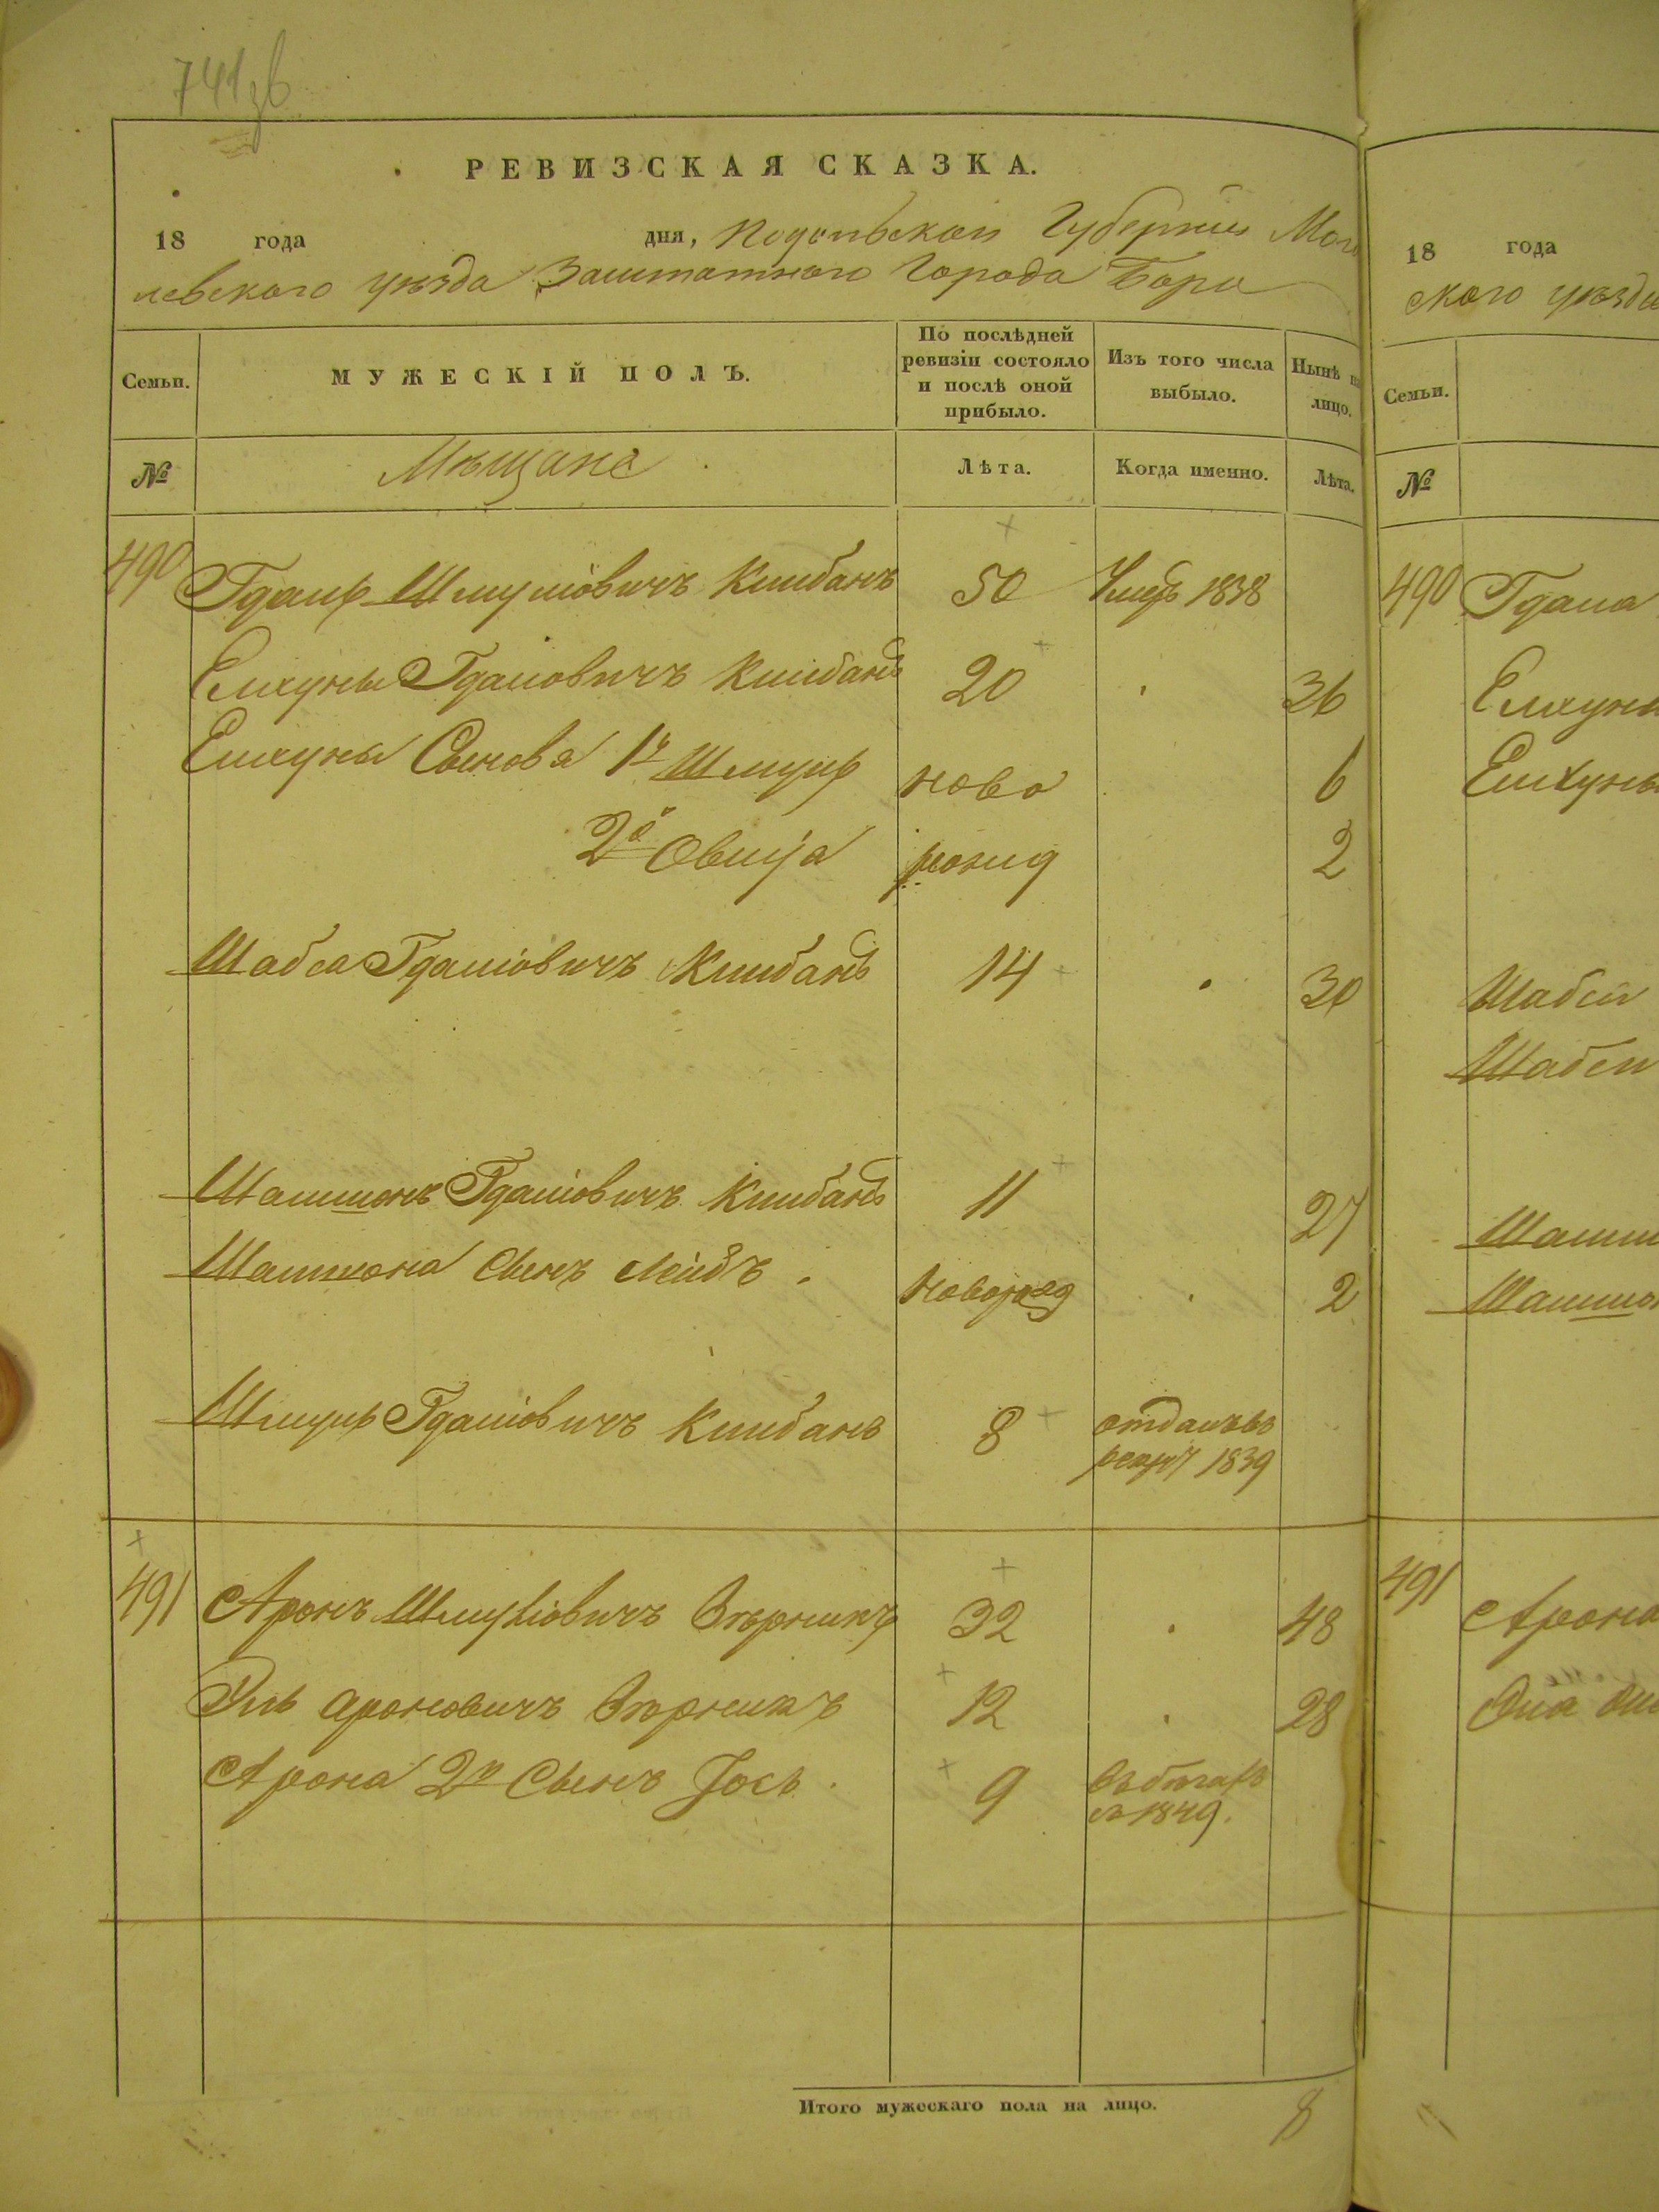 741
РЕВИЗСКАЯ СКАЗКА.
18 года дня, Подольской Губерніи Моги
левского уѣзда Заштатного Города Бара
Семьи.
МУЖЕСКІЙ ПОЛЪ.
По послѣдней ревизіи состояло и послѣ оной прибыло.
Изъ того числа выбыло.
Нынѣ на лицо.
№
Мѣщане
Лѣта.
Когда именно.
Лѣта.
490 Гдаль Шмуліовичъ Килбанъ 50 Умеръ 1838
Гдаліовичъ Килбанъ 20 36
Сынова 1й Шмуль ново 6
2й Овшія рожд 2
Шабса Гдаліовичъ Килбанъ 14 30
Шамшонъ Гдаліовичъ Килбанъ 11 27
Шамшона Сынъ Лейбъ новорожд 2
Шмуль Гдаліовичъ Килбанъ 8 отданъ въ рекруты 1839
491 Аронъ Шмуліовичъ 32 48
Ароновичъ 12 28
Арона 2й Сынъ Іось 9 въ бѣгахъ съ 1849.
Итого мужескаго пола на лицо. 8
18 года
ского уѣзда
Семьи.
№
490 Гдаля
Шабси
Шабси
491 Арона